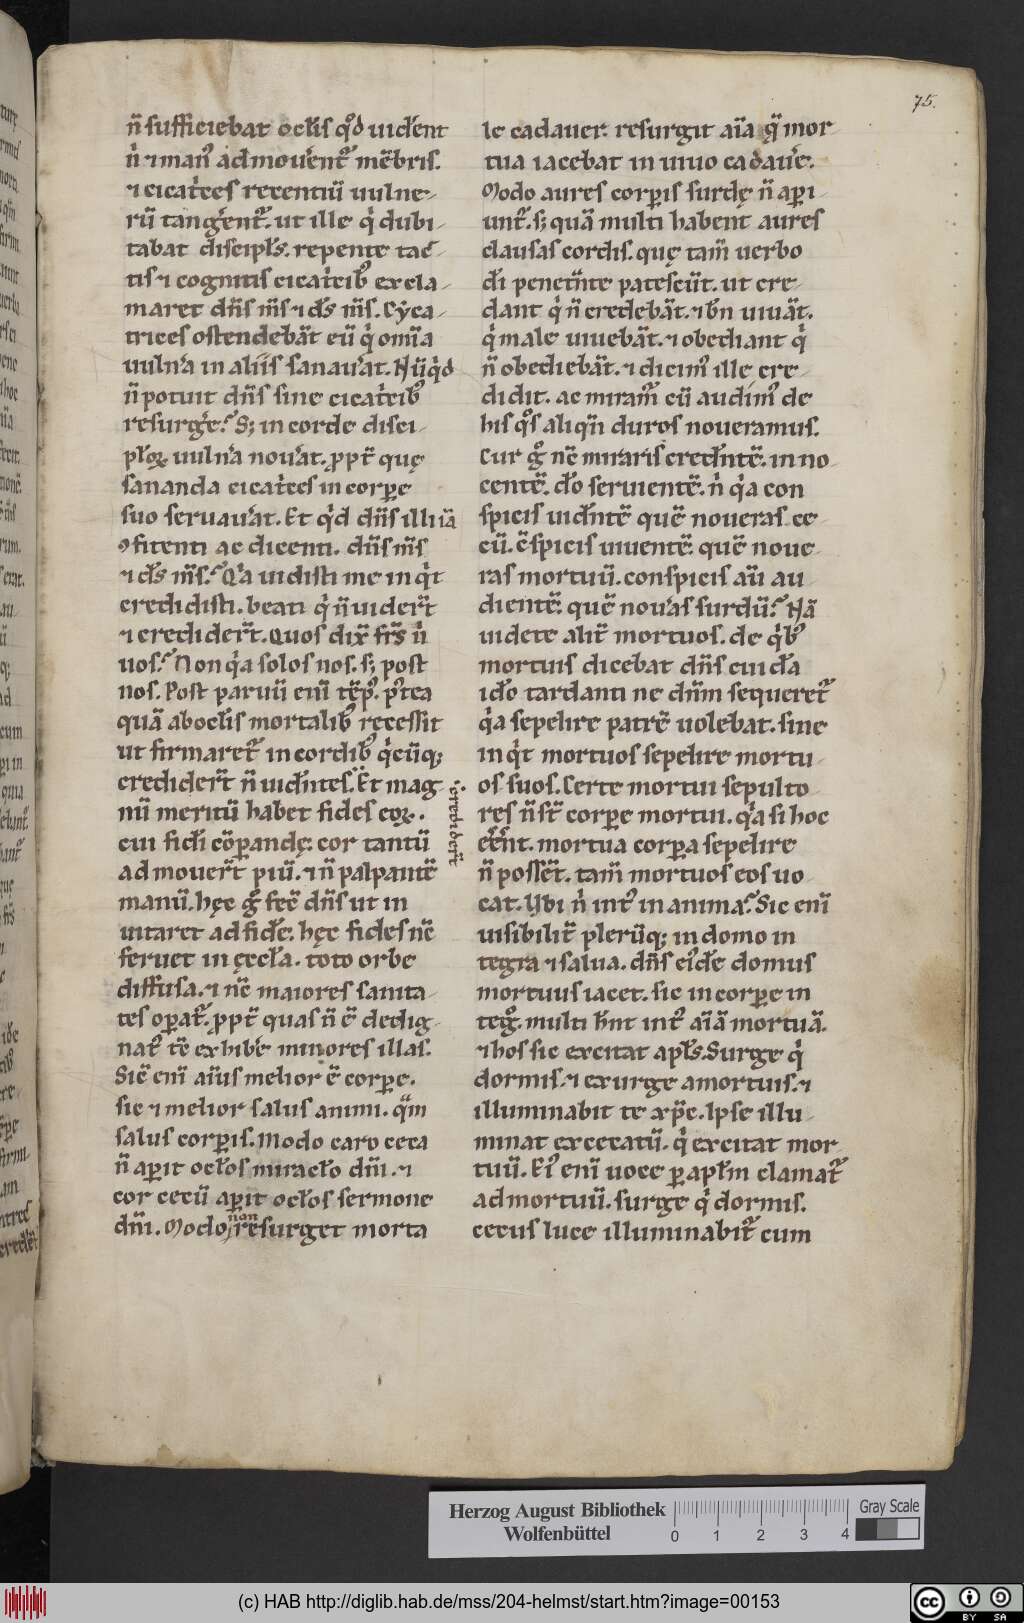 75.
n̄ sufficiebat ocl̄is qd̊ uidēnt
n̍ ⁊ man᷒ admouēnt᷒ mēbris.
⁊ cicat̍ces recentiū uulne-
rū tangēnt᷒. ut ille q̍ dubi-
tabat discipl̄s. repente tac-
tis ⁊ cognitis cicat̍cib᷒ excla-
maret dn̄s m̄s ⁊ d̄s m̄s. Cẏca-
trices ostendebāt eū q̍ om̄ia
uuln̄a in aliis sanauāt. Nū q̍d
n̄ potuit dn̄s sine cicat̍cib᷒
resurgē? S; in corde disci-
pl̄oꝝ uuln̄a nouāt. ꝓpt̄ quę
sananda cicat̍ces in corꝑe
suo seruauāt. Et q̍d dn̄s illi iā
ꝯfitenti ac dicenti. dn̄s m̄s
⁊ d̄s m̄s? Q̍a uidisti me inq̍t
credidisti. beati q̍ n̄ uider̄t
⁊ credider̄t. Quos dix̄ fr̄s n̍
uos? Non q̍a solos nos. s; post
nos. Post paruū eni tēp᷒. p᷒tea
quā ab ocl̄is mortalib᷒ recessit
ut firmaret᷒ in cordib᷒ q̍cūq;
credider̄t n̄ uid̄ntes. Et mag-
credider̄t
nū meritū habet fides eoꝝ.
cui fidi cōparandę: cor tantū
admouer̄t piū. ⁊ n̄ palpantē
manū. hęc g̊ fec̄ dn̄s ut in
uitaret ad fidē. hęc fides nc̄
feruet in ęccl̄a. toto orbe
diffusa. ⁊ nc̄ maiores sanita-
tes oꝑat᷒. ꝓpt̄ quas n̄ ē dedig-
nat᷒ tc̄ exhibē minores illas.
Sic̄ eni ai̅us melior ē corꝑe.
sic ⁊ melior salus animi. qm̄
salus corꝑis. Modo caro ceca
n̄ aꝑit ocl̄os miracl̄o dn̄i. ⁊
cor cecū aꝑit ocl̄os sermone
dn̄i. Modo non resurget morta
le cadauer. resurgit aīa q̄ mor-
tua iacebat in uiuo cadauē.
Modo aures corꝑis surdę n̄ aꝑi-
unt᷒. s; quā multi habent aures
clausas cordis. quę tam̄ uerbo
dī penet̄nte patescūt. ut cre-
dant q̍ n̄ credebāt. ⁊ bn̄ uiuāt.
q̍ male uiuebāt. ⁊ obediant q̍
n̄ obediebāt. ⁊ dicim᷒ ille cre-
didit. ac miram̄ cū audim᷒ de
his q̊s aliq̄n duros noueramus.
Cur g̊ nc̄ miraris cred̄ntē. inno-
centē. d̄o seruientē. n̍ q̍a con
spicis uid̄ntē quē noueras ce-
cū. ꝯspicis uiuentē. quē noue-
ras mortuū. conspicis aū au-
dientē. quē nou̍as surdū? Nā
uidete alit̄ mortuos. de q̍b᷒
mortuis dicebat dn̄s cuidā
iđo tardanti ne dn̄m sequeret᷒
q̍a sepelire patrē uolebat. sine
inq̍t mortuos sepelire mortu-
os suos. Certe mortui sepulto-
res n̄ st̄ corꝑe mortui. q̍a si hoc
ēēnt. mortua corꝑa sepelire
n̄ possēt. tam̄ mortuos eos uo-
cat. Ubi n̍ int᷒ in anima? Sic eni
uisibilit̄ plerūq; in domo in
tegra ⁊ salua. dn̄s ei᷒dē domus
mortuus iacet. sic in corꝑe in
teg̊. multi hn̄t int᷒ aīā mortuā.
⁊ hos sic excitat apl̄s. Surge q̍
dormis. ⁊ exurge a mortuis. ⁊
illuminabit te xp̄c. Ipse illu-
minat excecatū. q̍ excitat mor-
tuū. Ei᷒ eni uoce ꝑ apl̄m clamat᷒
ad mortuū. surge q̍ dormis.
cecus luce illuminabit᷒ cum
Herzog August Bibliothek
Wolfenbüttel
0 1 2 3 4
Gray Scale
(c) HAB http://diglib.hab.de/mss/204-helmst/start.htm?image=00153
cc BY SA